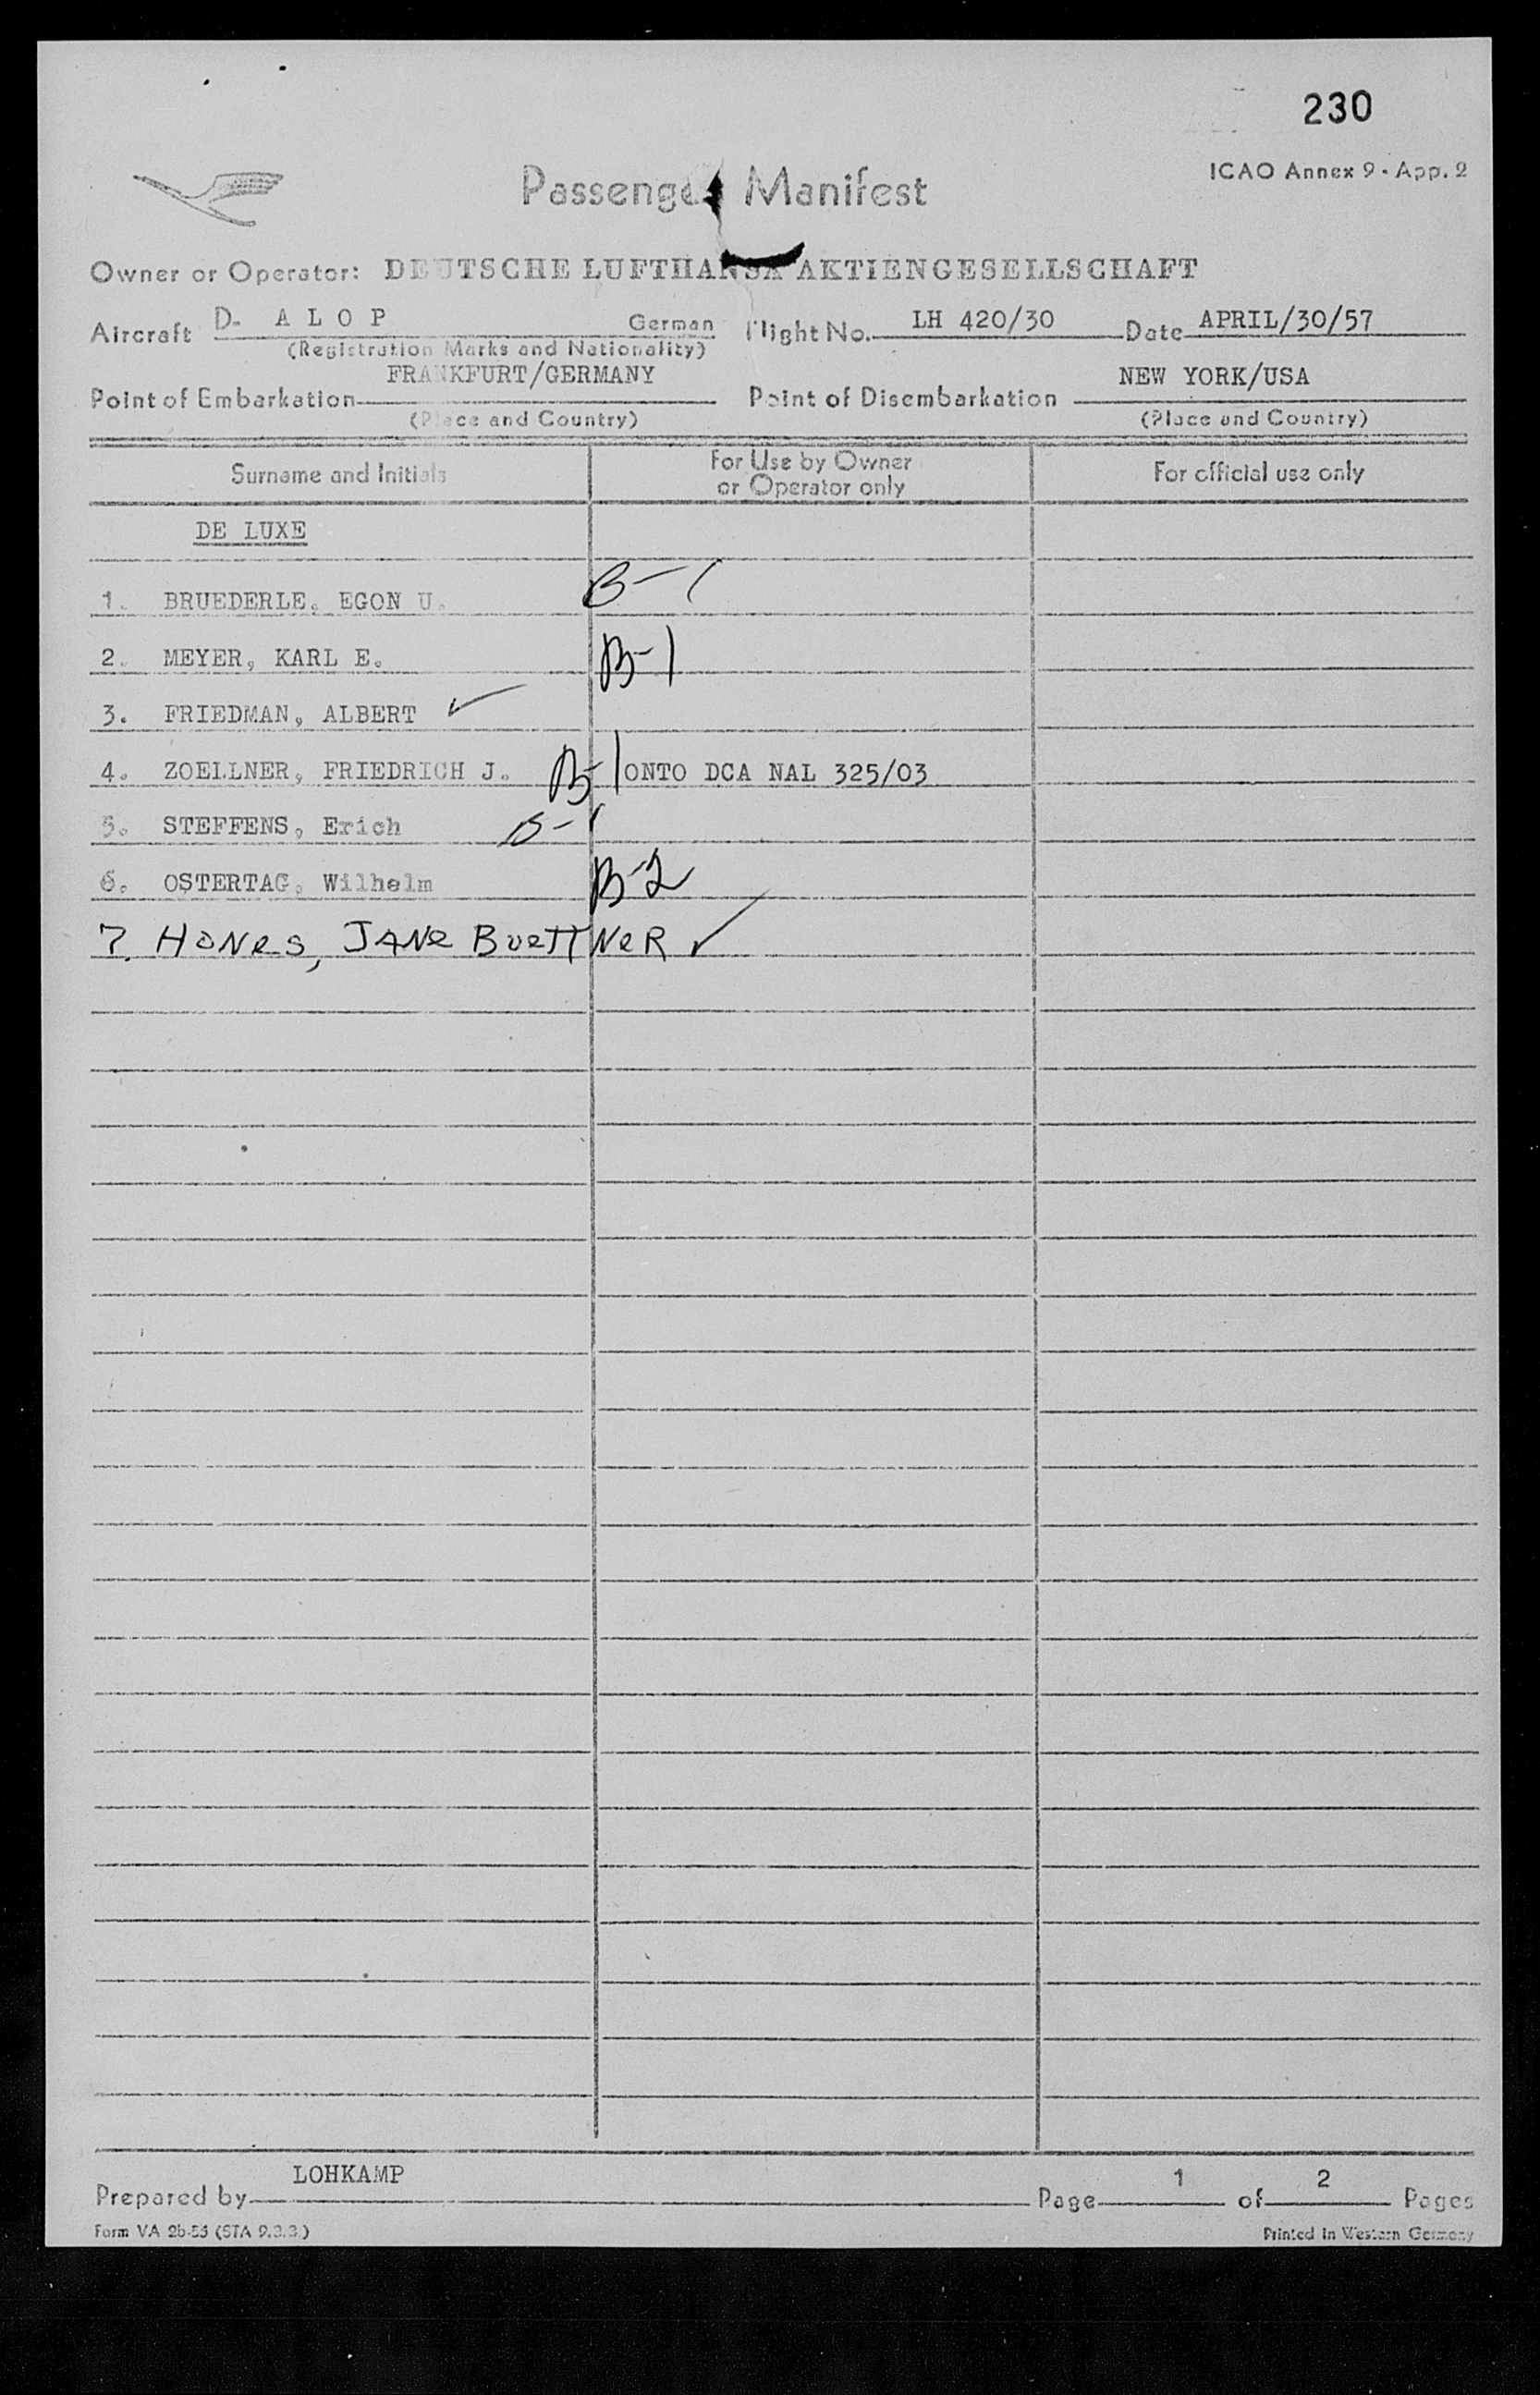 230
ICAO Annex 9 - App. 2
Passenger Manifest
Owner or Operator: DEUTSCHE LUFTHANSA AKTIENGESELLSCHAFT
Aircraft D- A L O P German Flight No. LH 420/30 Date APRIL/30/57
(Registration Marks and Nationality)
FRANKFURT/GERMANY NEW YORK/USA
Point of Embarkation Point of Disembarkation
(Place and Country) (Place and Country)
Surname and Initials For Use by Owner or Operator only For official use only
DE LUXE
1. BRUEDERLE, EGON U. B-1
2. MEYER, KARL E. B-1
3. FRIEDMAN, ALBERT ✓
4. ZOELLNER, FRIEDRICH J. B-1 ONTO DCA NAL 325/03
5. STEFFENS, Erich B-1
6. OSTERTAG, Wilhelm B-2
7. HONES, JANE BUETTNER ✓
LOHKAMP
Prepared by Page 1 of 2 Pages
Form VA 2b-55 (STA 9.3.3.) Printed in Western Germany